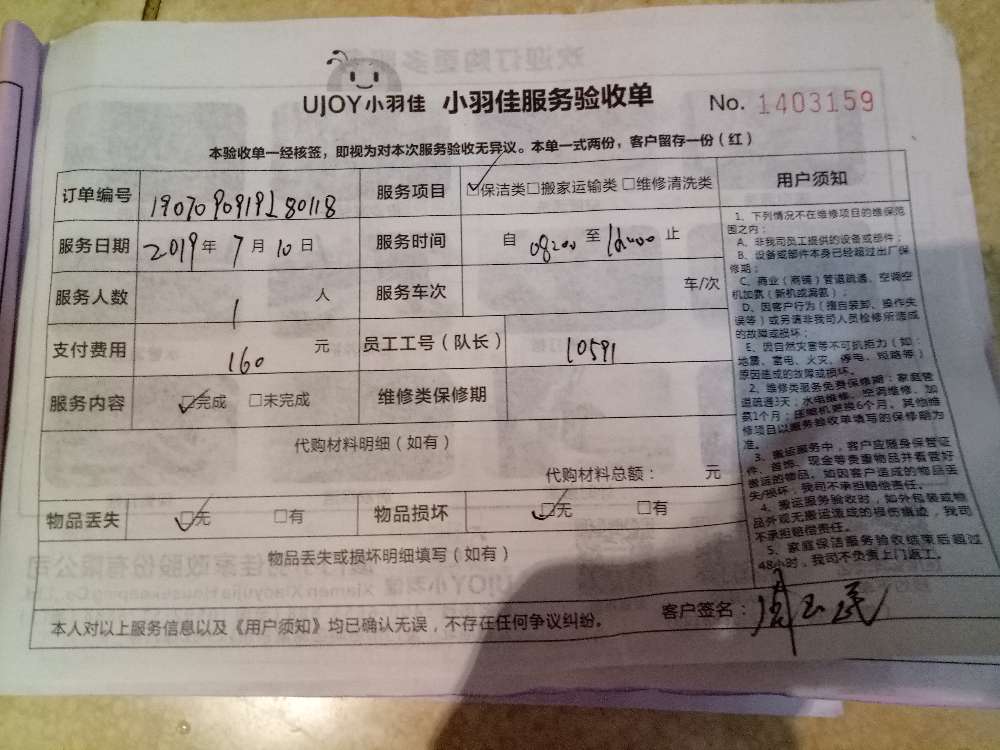 UJOY小羽佳 小羽佳服务验收单 No. 1403159
本验收单一经核签，即视为对本次服务验收无异议。本单一式两份，客户留存一份（红）
订单编号 服务项目 ☑保洁类□搬家运输类□维修清洗类
服务日期 2019年 7月 10日 服务时间 自 08:00 至 12:00 止
服务人数 1 人 服务车次 车/次
支付费用 160 元 员工工号（队长） 10591
服务内容 ☑完成 □未完成 维修类保修期
代购材料明细（如有）
代购材料总额： 元
物品丢失 ☑无 □有 物品损坏 ☑无 □有
物品丢失或损坏明细填写（如有）
本人对以上服务信息以及《用户须知》均已确认无误，不存在任何争议纠纷。 客户签名：
用户须知
1、下列情况不在维修项目的维保范
围之内：
A、非我司员工提供的设备或部件；
B、设备或部件本身已经超过出厂保
修期；
C、商业（商铺）管道疏通、空调空
机加氨（新机或漏氨）；
D、因客户行为（擅自装卸、操作失
误等）或另请非我司人员检修所造成
的故障或损坏；
E、因自然灾害等不可抗拒力（如：
地震、雷电、火灾、停电、短路等）
原因造成的故障或损坏。
2、维修类服务免费保修期：家庭管
道疏通3天；水电维修、空调维修、加
氨1个月；压缩机更换6个月。其他维
修项目以服务验收单填写的保修期为
准。
3、搬运服务中，客户应随身保管证
件、首饰、现金等贵重物品并看管好
搬运的物品。如因客户造成的物品丢
失/损坏，我司不承担赔偿责任。
4、搬运服务验收时，如外包装或物
品外观无搬运造成的损伤痕迹，我司
不承担赔偿责任。
5、家庭保洁服务验收结束后超过
48小时，我司不负责上门返工。